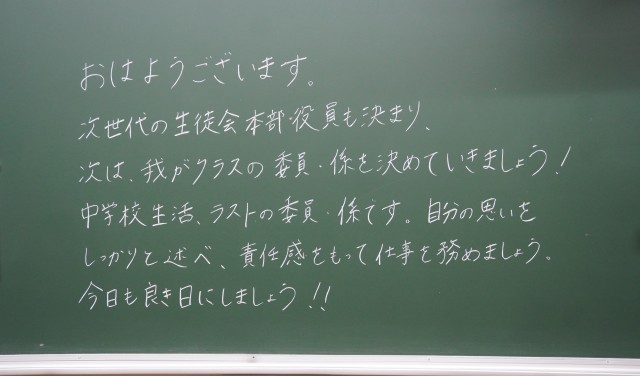 おはようございます。
次世代の生徒会本部・役員も決まり、
次は、我がクラスの委員・係を決めていきましょう!
中学校生活、ラストの委員・係です。自分の思いを
しっかりと述べ、責任感をもって仕事を務めましょう。
今日も良き日にしましょう!!